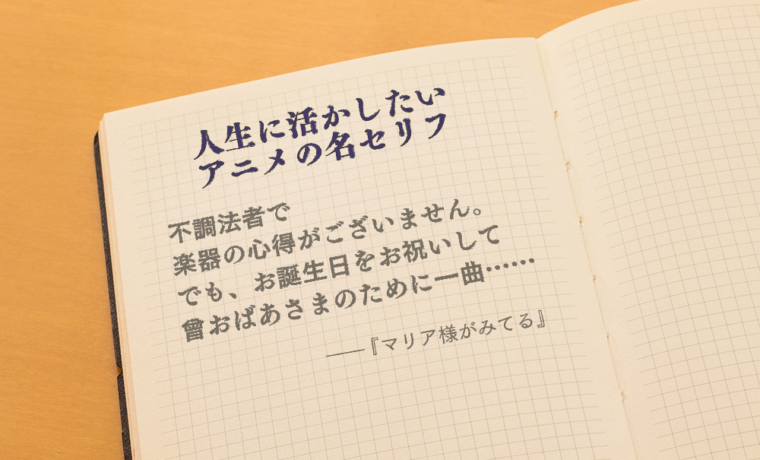 人生に活かしたい
アニメの名セリフ
不調法者で
楽器の心得がございません。
でも、お誕生日をお祝いして
曾おばあさまのために一曲……
――『マリア様がみてる』